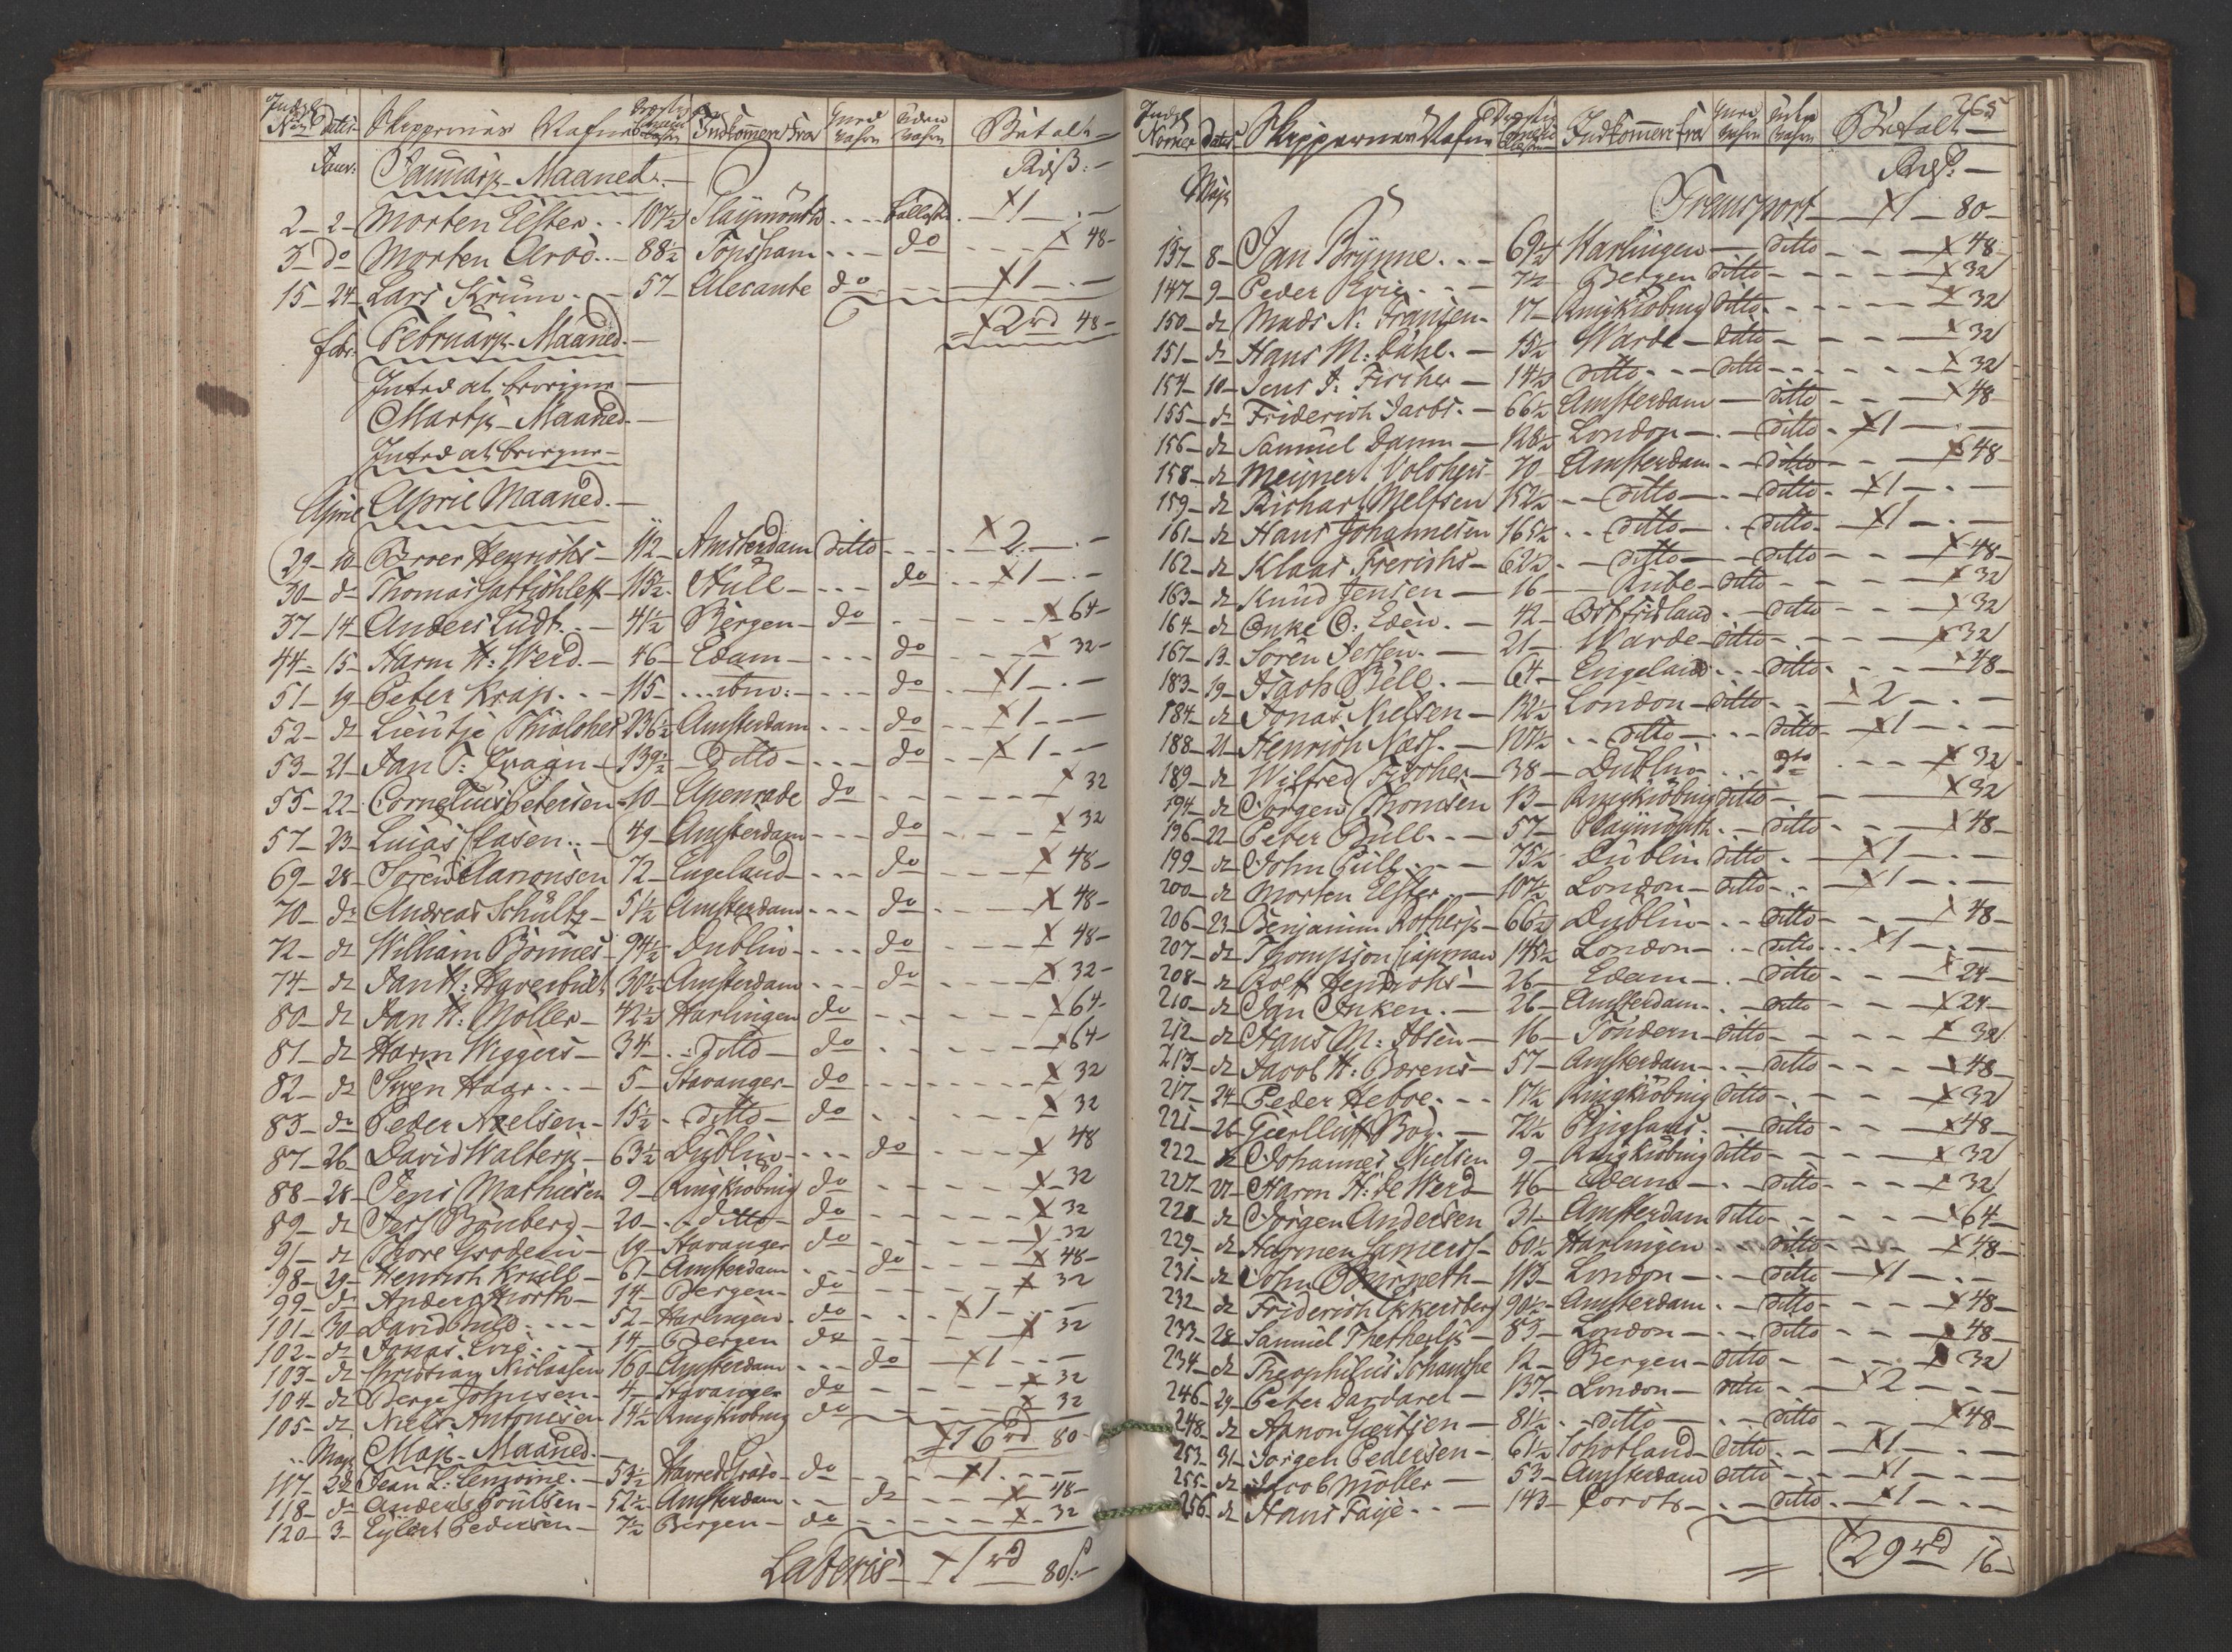 Skippernes Nafne Indkommen fra Betalt
Janr: Januarii Maaned.
2 - 2 - Morten Elster - 107½ Playmouth ballast 1 - . -
3 - do Morten Aroe - 88½ Topsham do 48 -
15 - 24 - Lars Krüm - 57 - Alecante do 1 - . -
2 rd 48 -
febr: Februarii Maaned.
Martii Maaned.
April April Maaned.
29 - 10 - Broer Henrichs - 112 - Amsterdam ditto 2 - . -
30 - do Thomas - 115½ Hull do 1 - . -
37 - 14 - Anders Lüdt - 41½ Bergen do 64 -
44 - 15 - Harm H: Werd - 46 - Edam do 32 -
51 - 19 - Peter Krap - 115 - do 1 - . -
52 - do Lieutje 236½ Amsterdam do 1 - -
53 - 21 - Jan 139½ Ditto do 1 - -
55 - 22 - Cornelius Petersen - 10 - Apenrade do 32
57 - 23 - Lucas Clasen - 49 - Amsterdam do 32
69 - 28 - Sören Aanonsen 72 - Engeland do 48 -
70 - do Andreas Schultz - 51½ Amsterdam do 48 -
72 - do William - 94½ Dublin do 48 -
74 - do Jan H: 30½ Amsterdam do 32 -
80 - do Jan H: Möller - 42½ Harlingen do 64 -
81 - do Harm Wiggers - 34 - ditto do 64 -
82 - do Sven Haar - 5 - Stavanger do 32
83 - do Peder Axelsen - 15½ ditto do 32
87 - 26 - David Walters - 63½ Dublin do 48
88 - 28 - Jens Mathiesen 9 - Ringkiöbing do 32
89 - do Bönberg - 20 - ditto do 32
91 - do Thore - 19 - Stavanger do 32
98 - 29 - Henrich Krull - 67 - Amsterdam do 48 -
99 - do Anders - 14 - Bergen do 32
101 - 30 - David - 52 - Harlingen do 1 - . -
102 - do Jonas - 14 - Bergen do 32
103 - do Christian Niclaasen 160 - Amsterdam do 1 - -
104 - do Johnsen - 4 - Stavanger do 32
105 - do Niels Antonisen 14½ Ringkiobing do 32
16 rd 80 -
Maji Maji Maaned.
117 - 2d Jean L: - 53½ do 1 - - -
118 - do Anders Poulsen - 52½ Amsterdam do 48 -
120 - 3 - Eylert Pedersen - 7½ Bergen do 32
Lateris 1 rd 80 ß -
265
Skippernes Nafne Indkommen fra Betalt
Maji
Transport 1 - 80 -
137 - 8 - Jan Brünne - 69½ Harlingen ditto 48
147 - 9 - Peder - 7½ Bergen ditto 32
150 - do Mads N: Fransen - 17 - Ringkiobing ditto 32
151 - do Hans M: Dahl - 15½ Warde ditto 32
154 - 10 - Jens J: Fischer - 14½ ditto ditto 32
155 - do Friderich Jacobs - 66½ Amsterdam ditto 48
156 - do Samuel Damm - 128½ London ditto 1 - . -
158 - do Meinert Volchers - 70 - Amsterdam ditto 48 -
159 - do Richart Meltsen 152½ ditto ditto 1 - . -
161 - do Hans Johannesen 165½ ditto ditto 1 - . -
162 - do Klaas Frerichs - 62½ ditto ditto 48 -
163 - do Knud Jensen - 16 - Ribe ditto 32
164 - do Onke O: Eden - 42 - Ostfridland ditto 32
167 - 13 - Sören Jessen - 21 - Warde ditto 32
183 - 19 - Isach Bell - 64 - Engeland ditto 48 -
184 - do Jonas Nielsen - 132½ London ditto 2 - . -
188 - 21 - Henrich - 117½ ditto ditto 1 - . -
189 - do Wilfred Fischer - 38 - Dublin dto 32
194 - do Jorgen Thomsen 13 - Ringkiöbing ditto 32
196 - 22 - Peter Bull - 57 - Playmouth ditto 48 -
199 - do John Bull - 75½ Dublin ditto 1 - . -
200 - do Morten Elster - 107½ London ditto 1 - . -
206 - 23 - Benjamin - 66½ Dublin ditto 48 -
207 - do Thompson Capman 145½ London ditto 1 - . -
208 - do Roelf Hendrichs - 26 - Edam ditto 24 -
210 - do Jan Inken - 26 - Amsterdam ditto 24 -
212 - do Hans M: Ibsen - 16 - Töndern ditto 32
213 - do Jacob H: Borens - 57 - Amsterdam ditto 48 -
217 - 24 - Peder Heboe - 17½ Ringkiöbing ditto 32
221 - 26 - 72½ ditto 48 -
222 - do Johannes Nielsen 9 - Ringkiobing ditto 32
227 - 27 - Harm H: de Werd 46 - Edam ditto 32
228 - do Jörgen Andersen 31 - Amsterdam ditto 64
229 - do Harmen - 60½ Harlingen ditto 48 -
231 - do John - 113 - London ditto 1 - . -
232 - do Friderich Ekkersberg 90½ Amsterdam ditto 48 -
233 - 28 - Samuel - 83 - London ditto 48 -
234 - do Theophilus Schanche 12 - Bergen ditto 32
246 - 29 - Peter Dandarel - 137 - London ditto 2 - -
248 - do Aanon Giertsen - 81½ ditto ditto 48 -
253 - 31 - Jorgen Pedersen - 61½ Schotland ditto 1 - . -
255 - do Jacob Möller - 53 - Amsterdam ditto 1 - . -
256 - do Hans Faye - 143 - ditto 1 - . -
29 rd 16 -